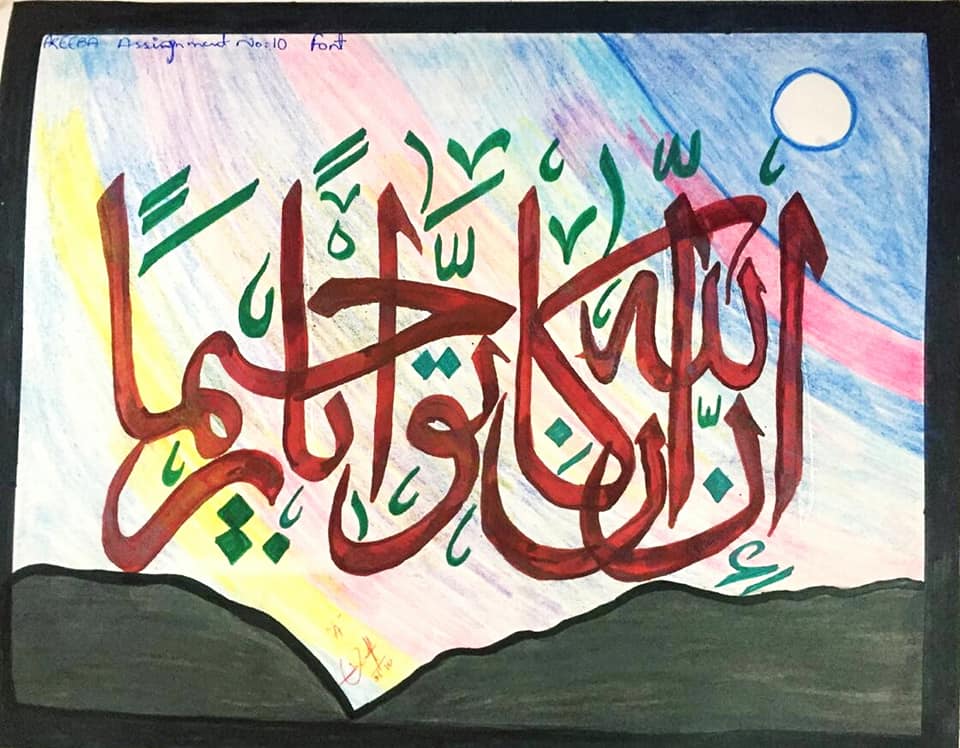 AREEBA Assignment No:10 Font
إِنَّ اللّٰهَ كَانَ تَوَّابًا رَحِيمًا
"A"